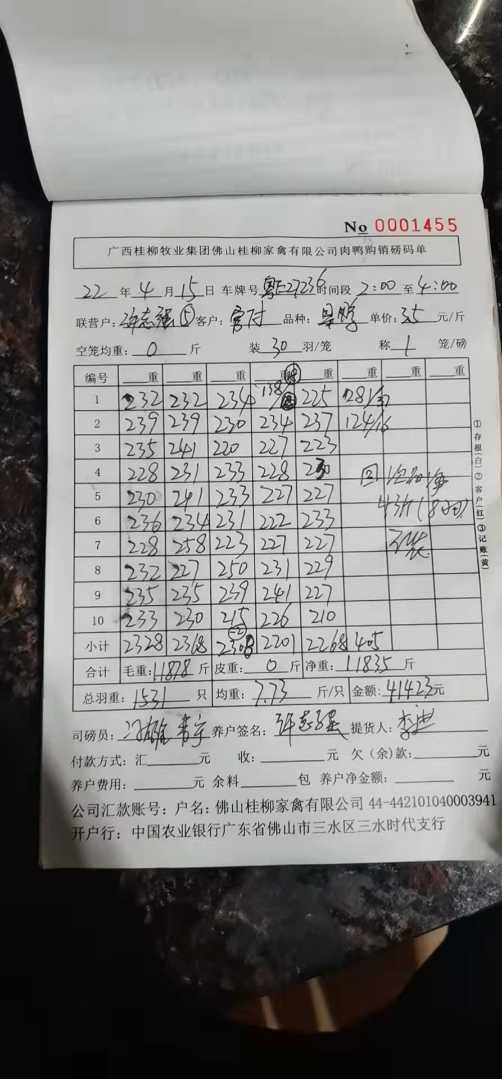 No 0001455
广西桂柳牧业集团佛山桂柳家禽有限公司肉鸭购销磅码单
22 年 4 月 15 日 车牌号 粤E27236 时间段 2:00 至 4:00
联营户: 许志强 ⑤ 客户: 品种: 单价: 3.5 元/斤
空笼均重: 0 斤 装 30 羽/笼 称 1 笼/磅
编号 重 重 重 重 重 重 重 重
1 232 232 234 138/ 225 281/37
2 239 239 230 234 237 124/16
3 235 241 220 227 223
4 228 231 233 228 230 回
5 230 241 233 227 227 43斤
6 236 234 231 222 233
7 228 258 223 227 227
8 232 227 250 231 229
9 235 235 239 241 227
10 233 230 215 226 210
小计 2328 2368 2308 2201 2268 405
合计 毛重: 11878 斤 皮重: 0 斤 净重: 11835 斤
总羽重: 1531 只 均重: 7.73 斤/只 金额: 41423 元
司磅员: 养户签名: 许志强 提货人:
付款方式: 汇 元 收: 元 欠(余)款: 元
养户费用: 元 余料 包 养户净金额: 元
公司汇款账号: 户名: 佛山桂柳家禽有限公司 44-442101040003941
开户行: 中国农业银行广东省佛山市三水区三水时代支行
①存根(白)②客户(红)③记账(黄)